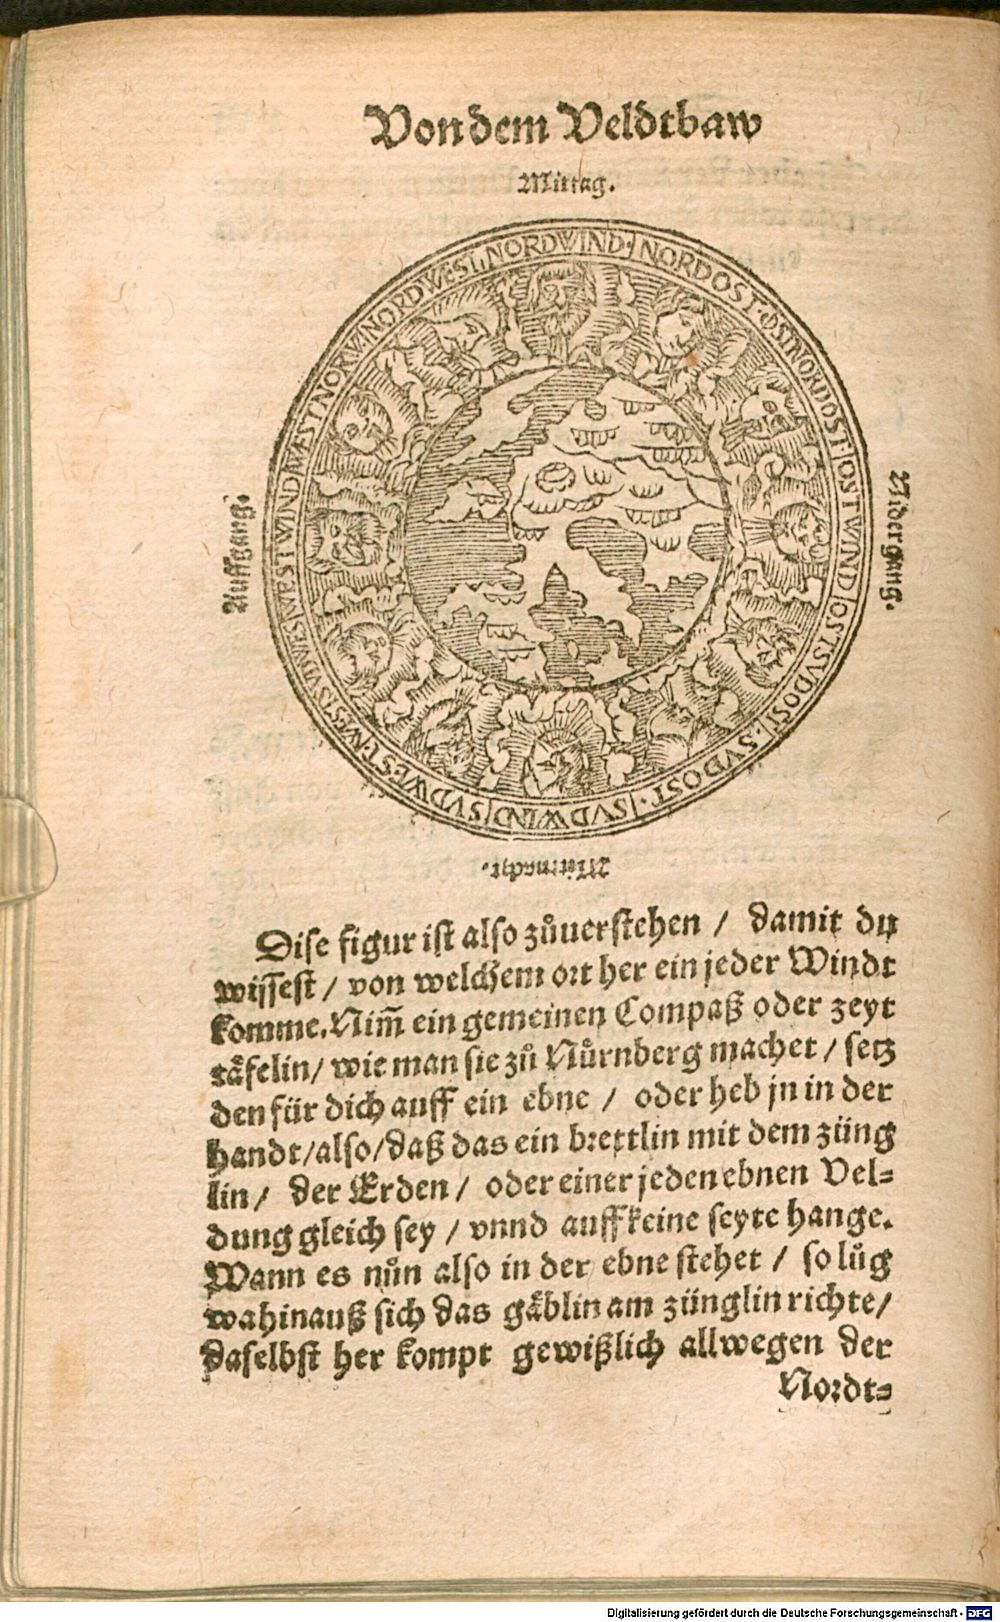 Von dem Veldtbaw
Mittag.
NORDWIND · NORDOST · OSTNORDOST · OSTWIND OSTSVDOST · SVDOST · SVDWIND SVDWEST · WESTSVDWES WESTWIND WÆSTNORW NORDWEST,
Auffgang.
Nidergang.
Mitternacht.
Dise figur ist also zůuerstehen / damit du
wissest / von welchem ort her ein jeder Windt
komme. Nim̃ ein gemeinen Compaß oder zeyt
tåfelin / wie man sie zů Nůrnberg machet / setz
den für dich auff ein ebne / oder heb jn in der
handt / also / daß das ein brettlin mit dem züng
lin / der Erden / oder einer jeden ebnen Vel=
dung gleich sey / vnnd auff keine seyte hange.
Wann es nůn also in der ebne stehet / so lůg
wahinauß sich das gåblin am zünglin richte /
daselbst her kompt gewißlich allwegen der
Nordt=
Digitalisierung gefördert durch die Deutsche Forschungsgemeinschaft - DFG